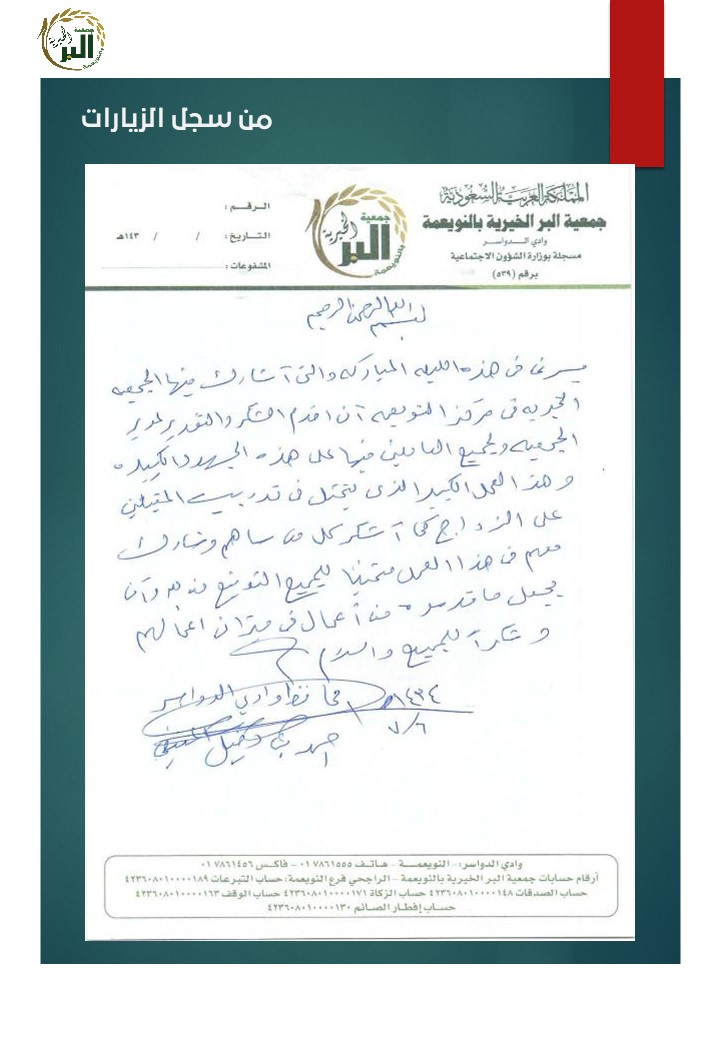 جمعية
البر
الخيرية
بالنويعمة
من سجل الزيارات
المملكة العربية السعودية
جمعية البر الخيرية بالنويعمة
وادي الدواسر
مسجلة بوزارة الشؤون الاجتماعية
برقم (٥٣٩)
جمعية
البر
الخيرية
بالنويعمة
الرقم :
التاريخ : / / ١٤٣هـ
المشفوعات :
بسم الله الرحمن الرحيم
يسرنا في هذه الليله المباركه والتي أشارك فيها الجمعيه
الخيريه في مركز النويعمه أن اقدم الشكر والتقدير لمدير
الجمعيه ولجميع العاملين فيها على هذه الجهود الكبيره
وهذا العمل الكبير الذي يتمثل في تدريب المقبلين
على الزواج كما أشكر كل من ساهم وشارك
معهم في هذا العمل متمنياً للجميع التوفيق من الله وأن
يجعل ما قدموه من أعمال في ميزان اعمالهم
وشكراً للجميع والسلام
محافظ وادي الدواسر
١٤٣٤هـ
٧/٦
احمد بن دخيل
وادي الدواسر: - النويعمـــة - هاتـف ٠١٧٨٦١٥٥٥ - فاكس ٠١٧٨٦١٤٥٦
أرقام حسابات جمعية البر الخيرية بالنويعمة - الراجحي فرع النويعمة: حساب التبرعات ٤٢٣٦٠٨٠١٠٠٠٠١٨٩
حساب الصدقات ٤٢٣٦٠٨٠١٠٠٠٠١٤٨ حساب الزكاة ٤٢٣٦٠٨٠١٠٠٠٠١٧١ حساب الوقف ٤٢٣٦٠٨٠١٠٠٠٠١٦٣
حساب إفطار الصائم ٤٢٣٦٠٨٠١٠٠٠٠١٣٠